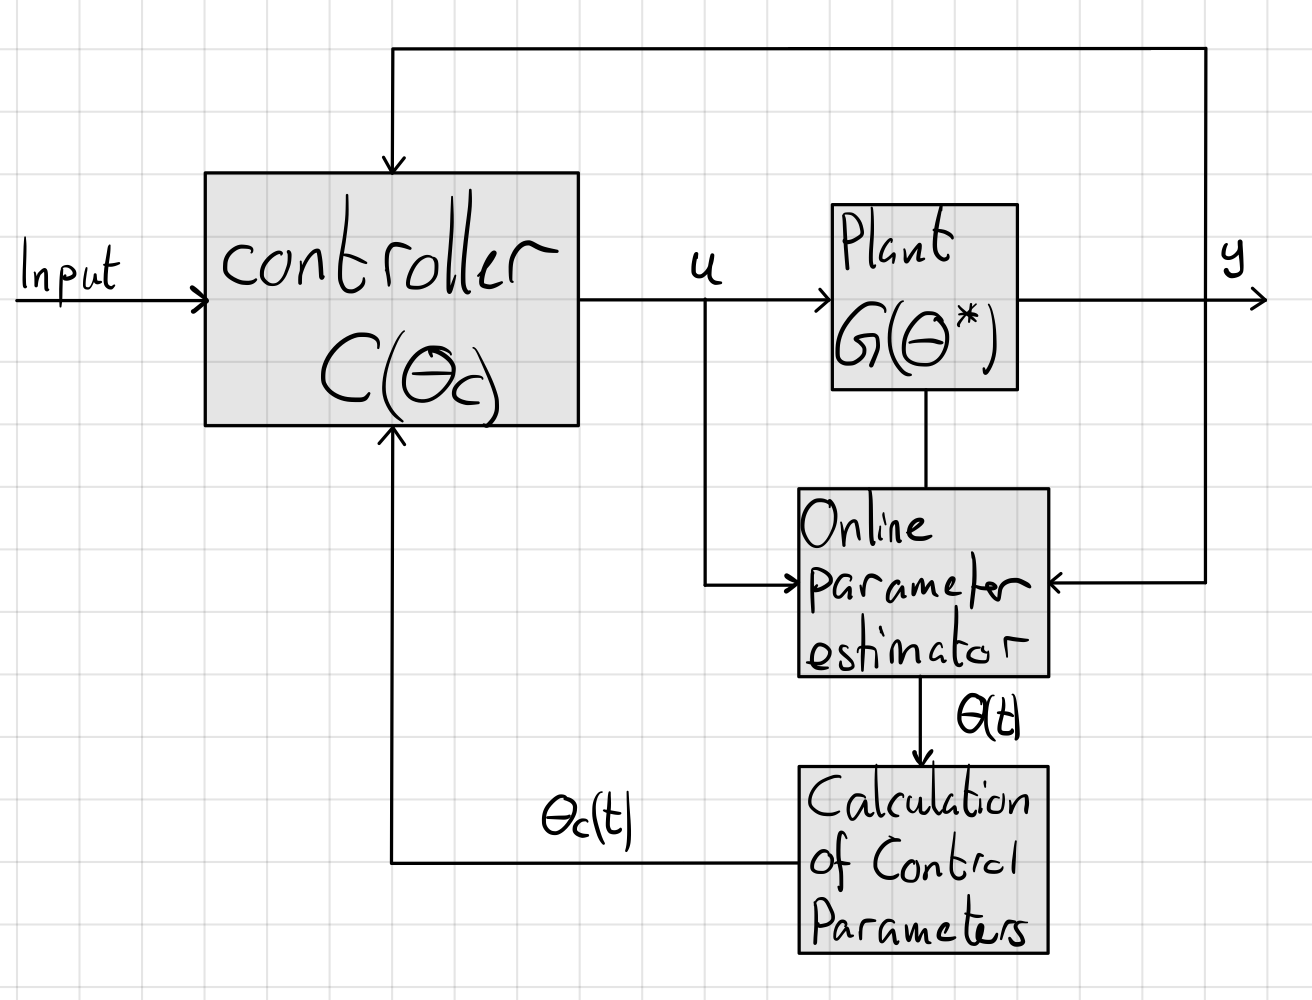 Input
controller
C(θc)
u
Plant
G(θ*)
y
Online
parameter
estimator
θ(t)
θc(t)
Calculation
of Control
Parameters